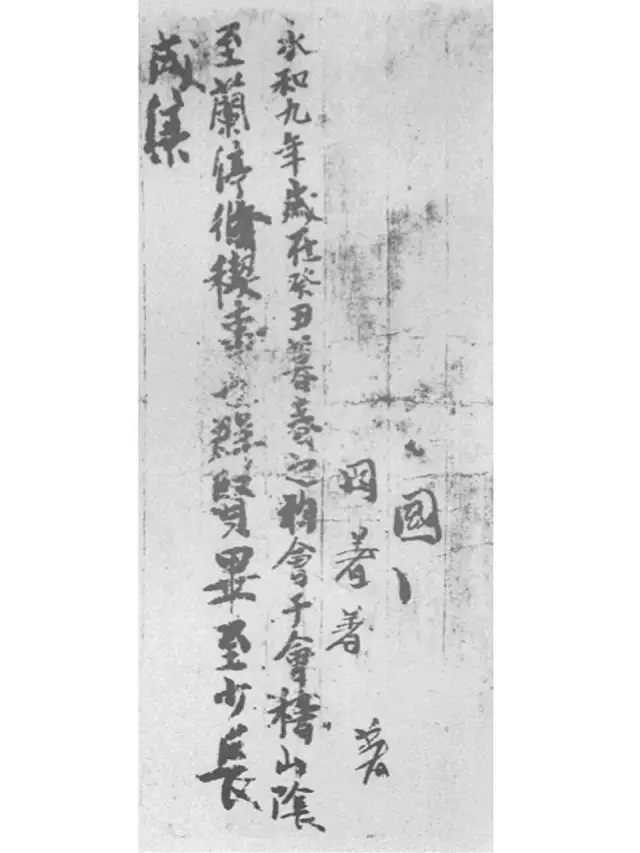 國
著著
永和九年歲在癸丑暮春之初會于會稽山陰
至蘭渟脩稧事也群賢畢至少長
咸集